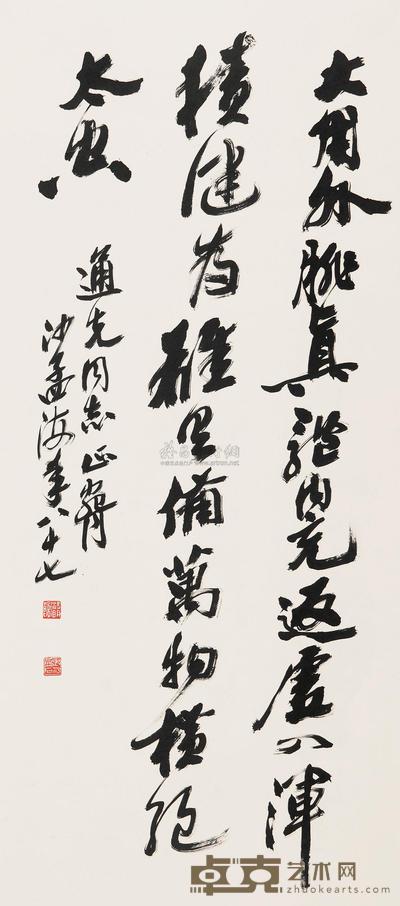 大用外腓真體内充返虛入渾
積健為雄具備萬物橫絕
太空
通先同志正
沙孟海年八十七
卓克艺术网
zhuokearts.com